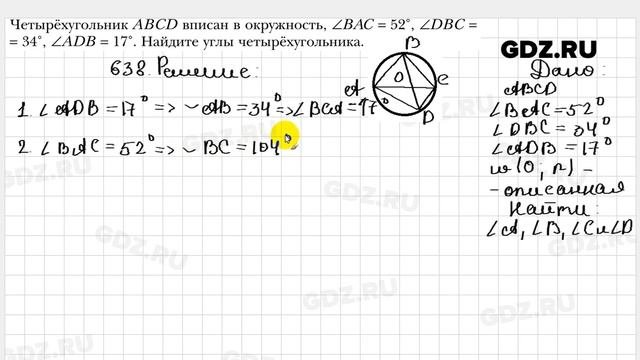 Четырёхугольник ABCD вписан в окружность, ∠BAC = 52°, ∠DBC =
= 34°, ∠ADB = 17°. Найдите углы четырёхугольника.
GDZ.RU
638. Решение:
1. ∠ADB = 17° => ◡AB = 34° => ∠BCA = 17°
2. ∠BAC = 52° => ◡BC = 104°
A
B
C
D
O
Дано:
ABCD
∠BAC = 52°
∠DBC = 34°
∠ADB = 17°
w(O; r) –
– описанная
Найти:
∠A, ∠B, ∠C и ∠D
GDZ.RU
GDZ.RU
GDZ.RU
GDZ.RU